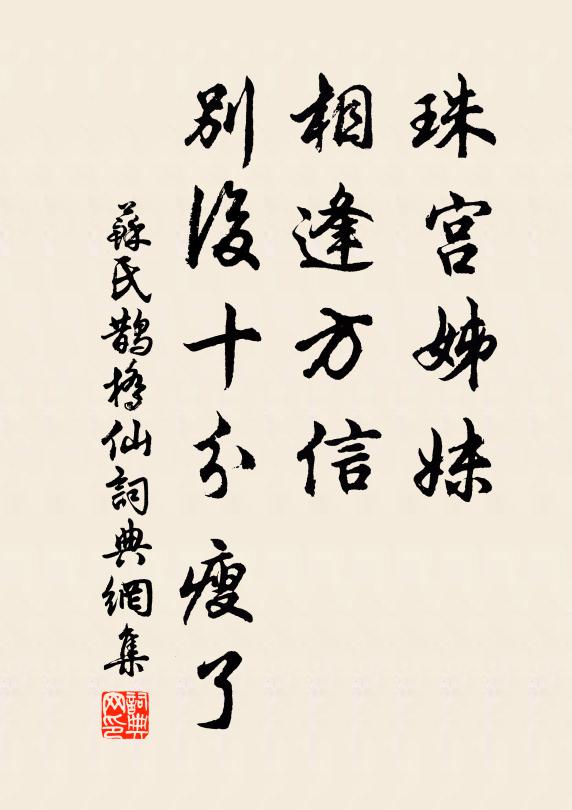 珠宮姊妹
相逢方信
別後十分瘦了
蘇氏鵲橋仙詞典網集
詞典网印